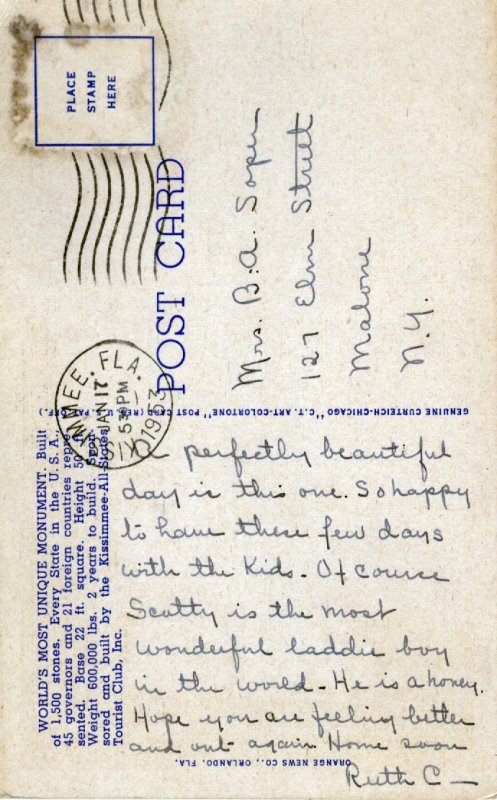 WORLD'S MOST UNIQUE MONUMENT. Built
of 1,500 stones. Every State in the U. S. A.,
45 governors and 21 foreign countries repre-
sented. Base 22 ft. square. Height 50 ft.
Weight 600,000 lbs. 2 years to build. Spon-
sored and built by the Kissimmee-All-States
Tourist Club, Inc.
A perfectly beautiful
day is this one. So happy
to have these few days
with the Kids. Of course
Scotty is the most
wonderful laddie boy
in the world. He is a honey.
Hope you are feeling better
and out again. Home soon
Ruth C—
ORANGE NEWS CO., ORLANDO, FLA.
GENUINE CURTEICH-CHICAGO "C.T. ART-COLORTONE" POST CARD (REG. U. S. PAT. OFF.)
POST CARD
PLACE
STAMP
HERE
KISSIMMEE, FLA.
JAN 17
530 PM
1953
Mrs. B. A. Soper
127 Elm Street
Malone
N.Y.